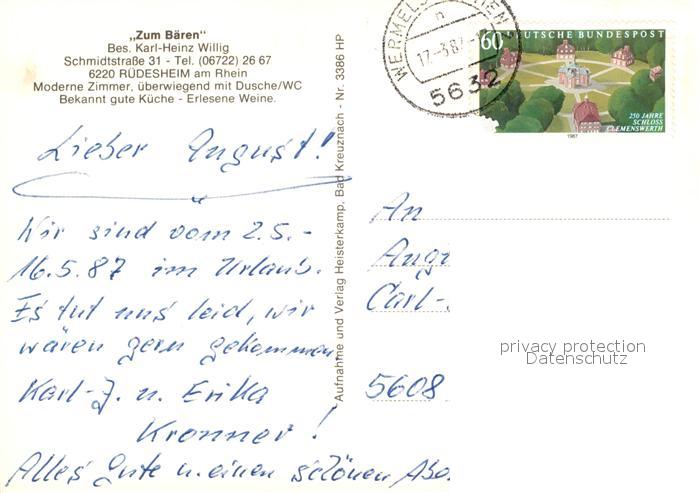 „Zum Bären"
Bes. Karl-Heinz Willig
Schmidtstraße 31 - Tel. (06722) 26 67
6220 RÜDESHEIM am Rhein
Moderne Zimmer, überwiegend mit Dusche/WC
Bekannt gute Küche - Erlesene Weine.
Lieber August!
Wir sind vom 2.5.-
16.5.87 im Urlaub.
Es tut uns leid, wir
wären gern gekommen
Karl-J. u. Erika
Kronner!
Alles Gute u. einen schönen Abe.
Aufnahme und Verlag Heisterkamp, Bad Kreuznach - Nr. 3386 HP
n
17.-3.87
5632
60 DEUTSCHE BUNDESPOST
250 JAHRE
SCHLOSS
CLEMENSWERTH
1987
An
Augu
Carl-
privacy protection
Datenschutz
5608